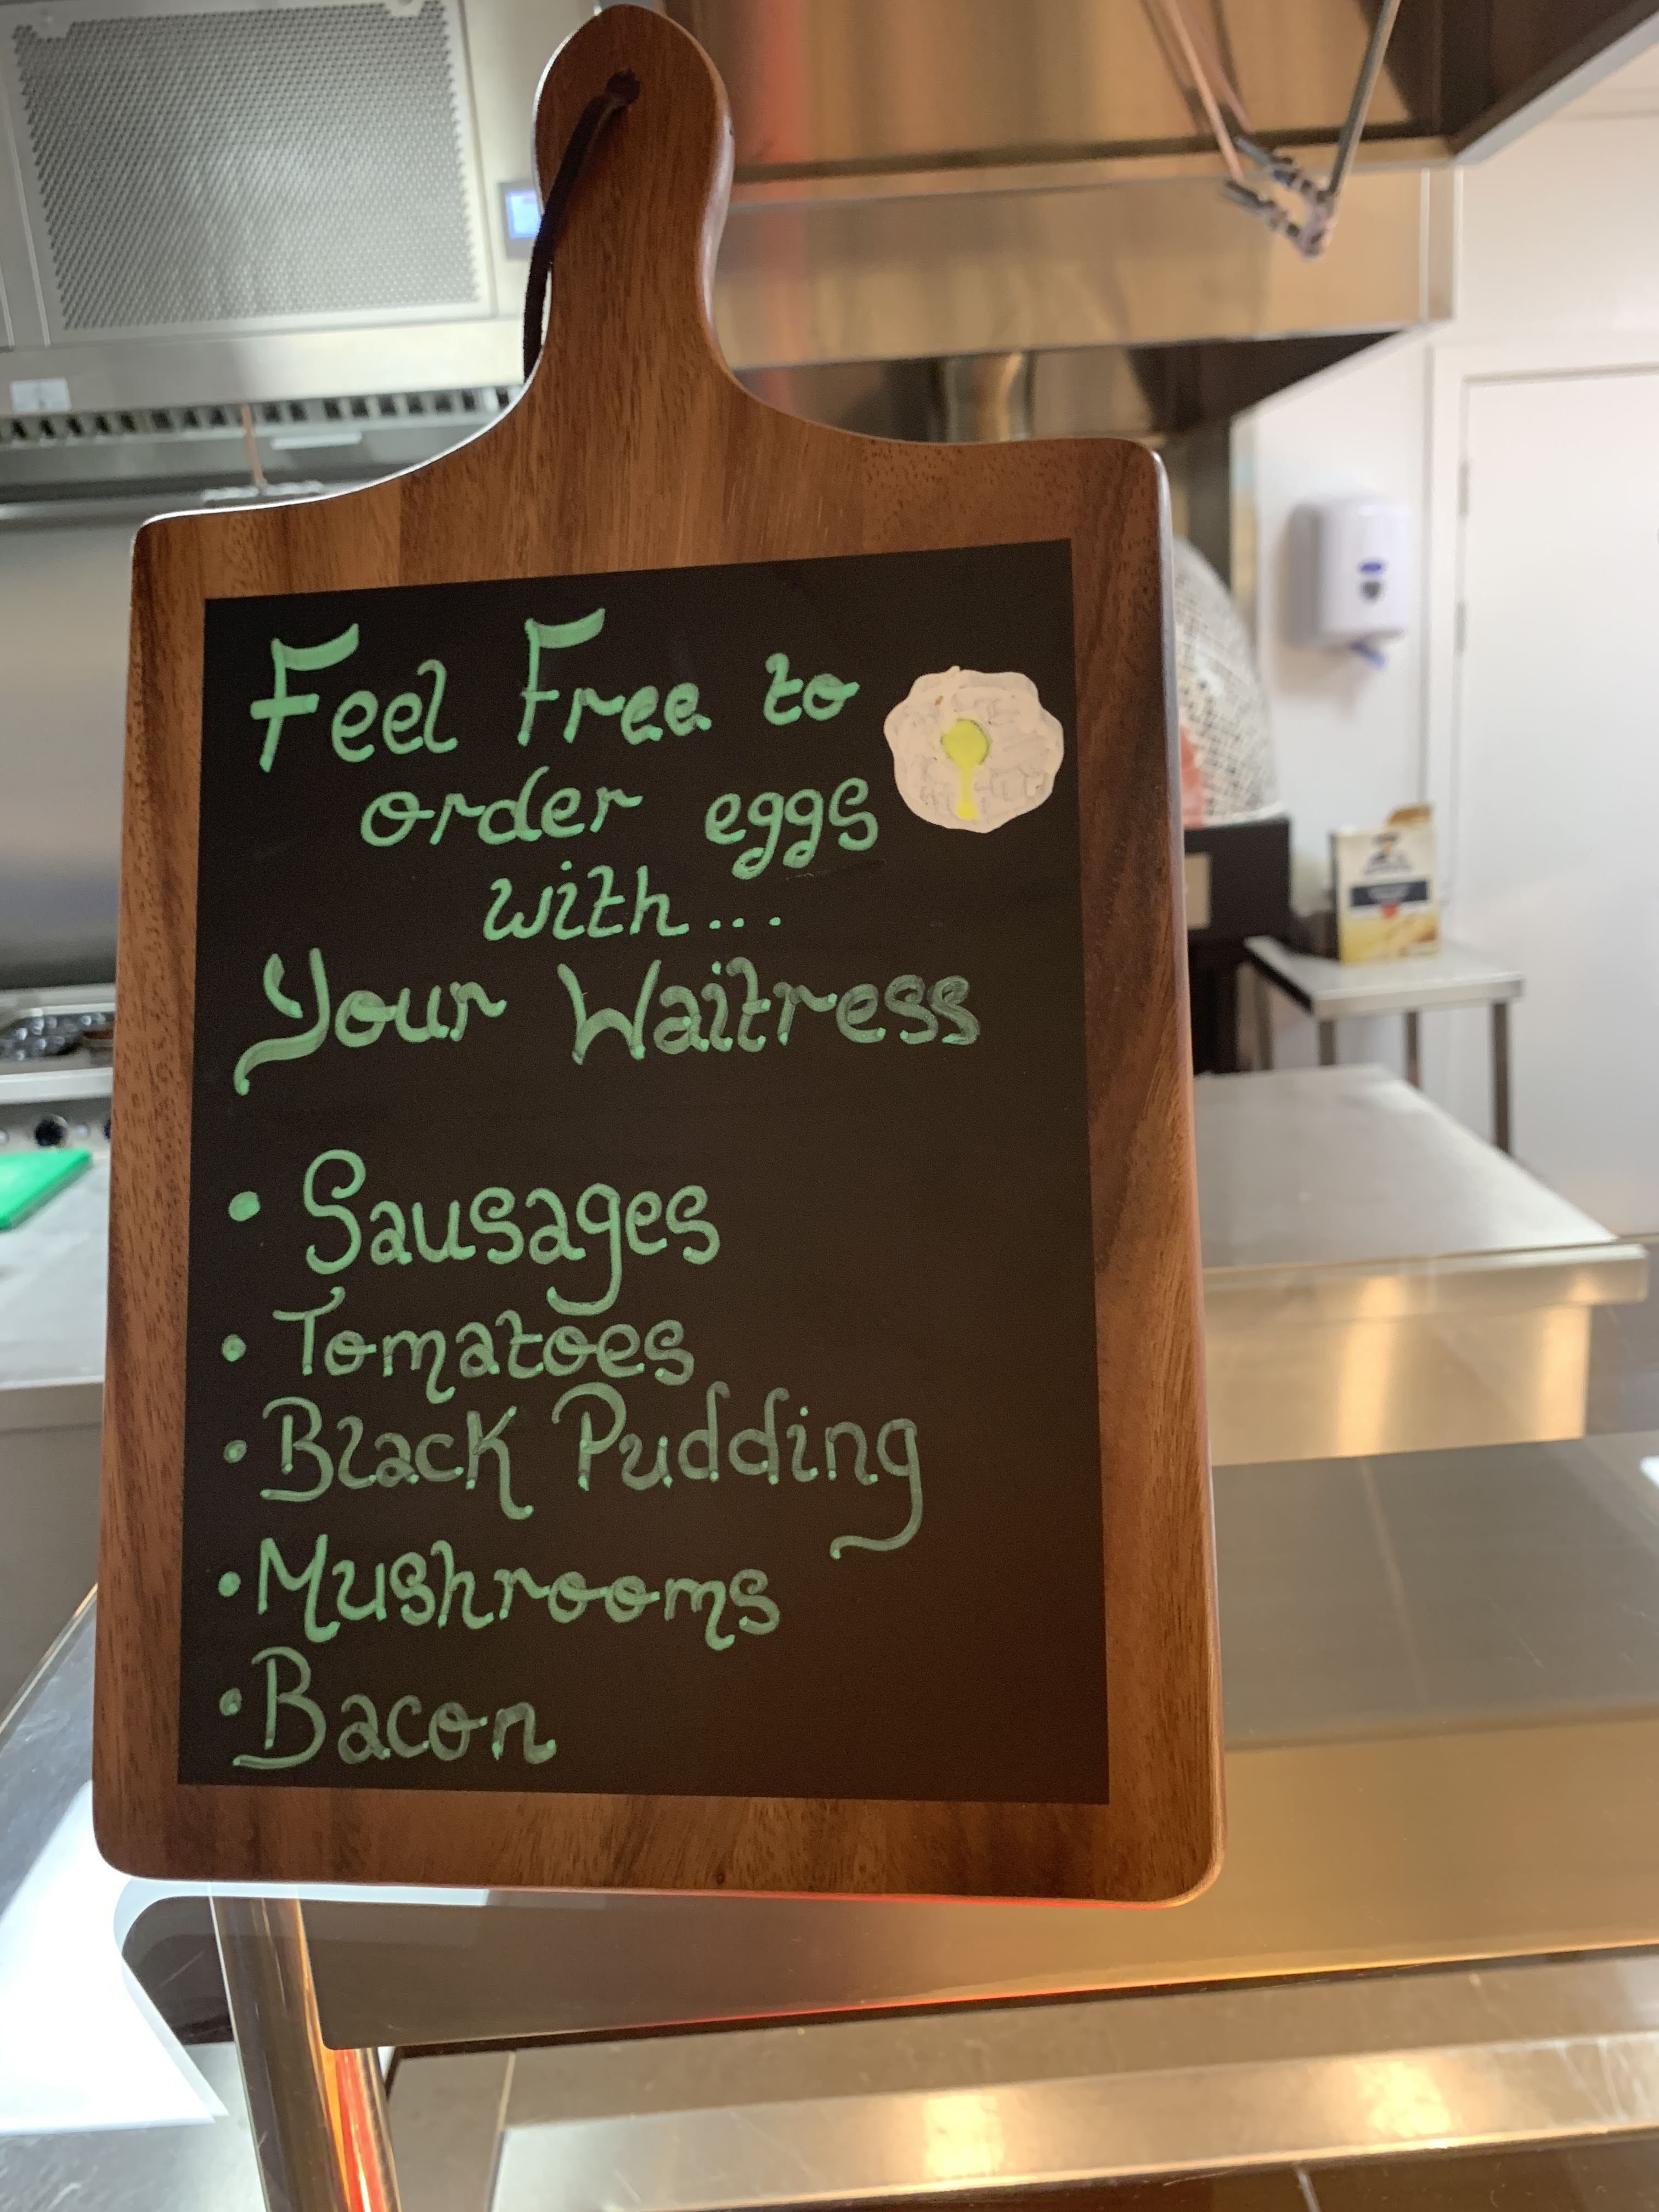 Feel Free to
order eggs
with...
Your Waitress
• Sausages
• Tomatoes
• Black Pudding
• Mushrooms
• Bacon